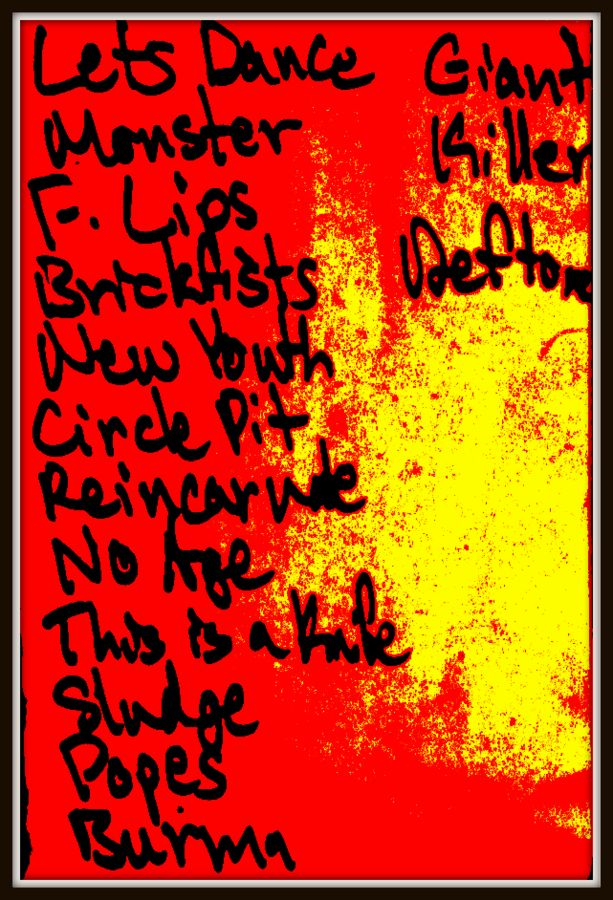 Lets Dance
Monster
F. Lips
Brickfists
New Youth
Circle Pit
Reincarnate
No Age
This is a Knife
Sludge
Popes
Burma
Giant
Killer
Deftone